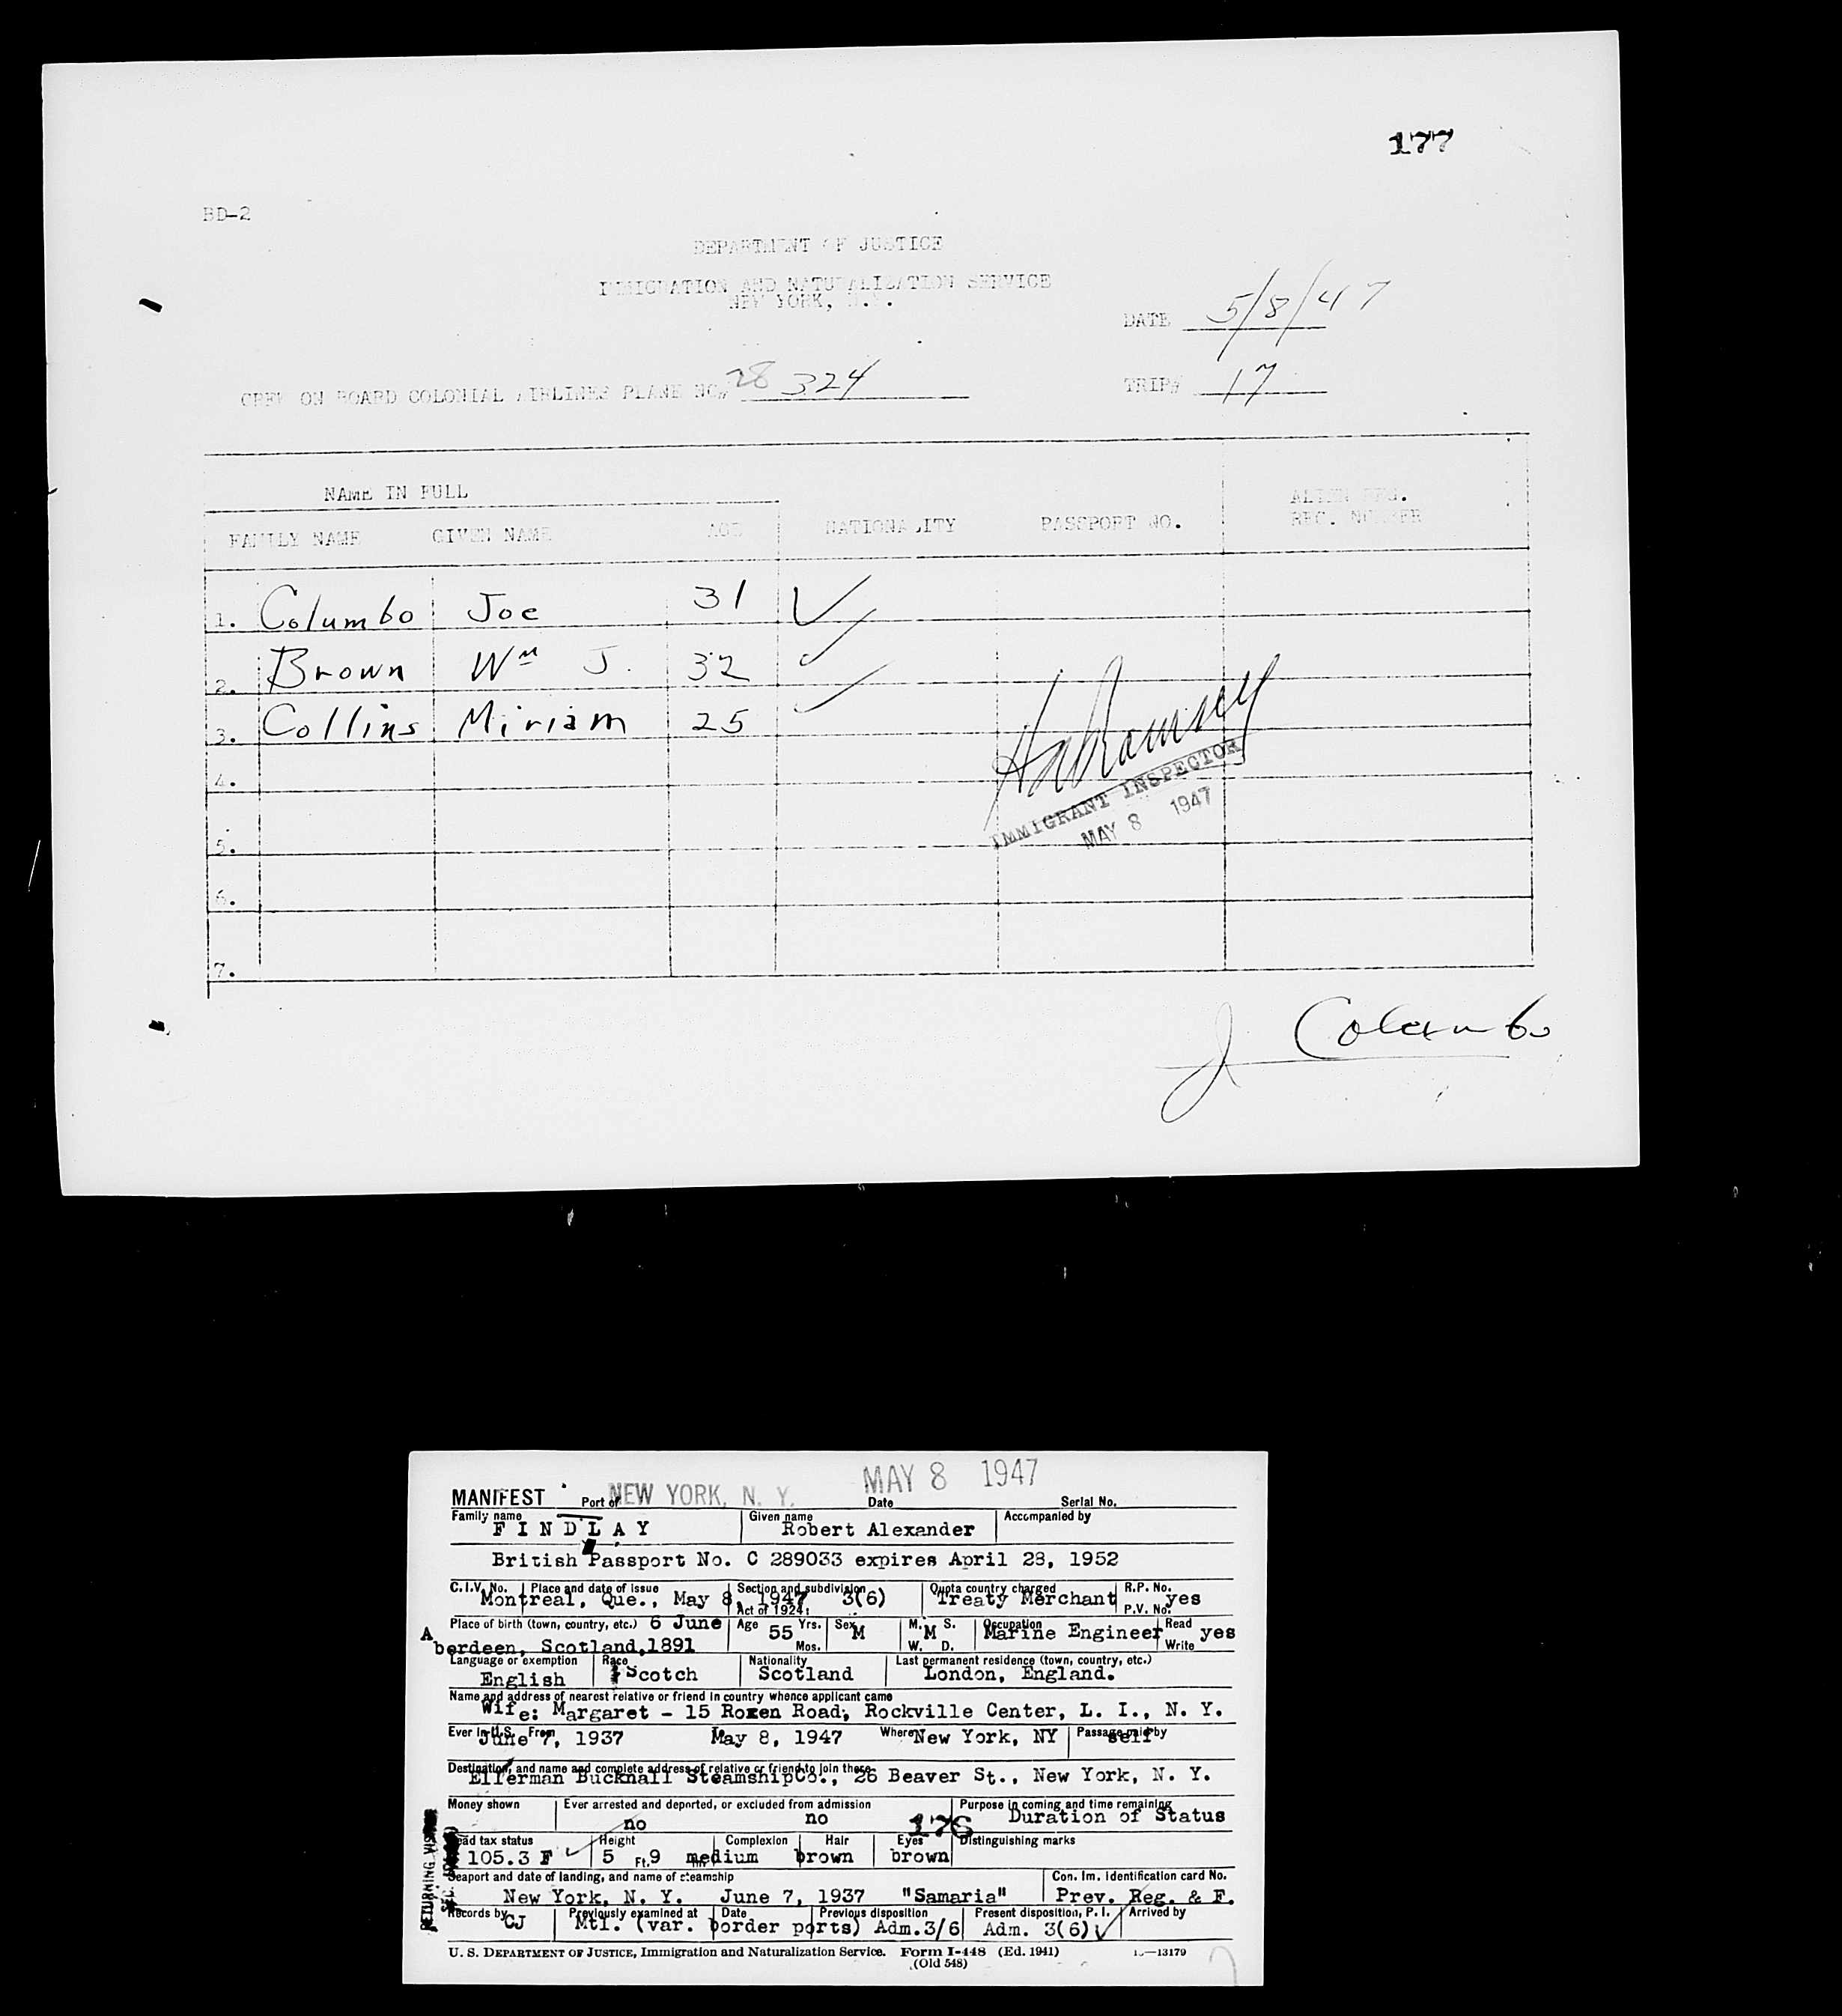 177
BD-2
DEPARTMENT OF JUSTICE
IMMIGRATION AND NATURALIZATION SERVICE
NEW YORK, N.Y.
DATE 5/8/47
CREW ON BOARD COLONIAL AIRLINES PLANE NO# 28324 TRIP# 17
NAME IN FULL
ALIEN REG.
FAMILY NAME GIVEN NAME AGE NATIONALITY PASSPORT NO. REC. NUMBER
1. Columbo Joe 31
2. Brown Wm J. 32
3. Collins Miriam 25
4.
IMMIGRANT INSPECTOR
MAY 8 1947
5.
6.
7.
J Columbo
MAY 8 1947
MANIFEST Port of NEW YORK, N. Y. Date Serial No.
Family name Given name Accompanied by
FINDLAY Robert Alexander
British Passport No. C 289033 expires April 28, 1952
C.I.V. No. Place and date of issue Section and subdivision Quota country charged R.P. No.
Montreal, Que., May 8, 1947 3(6) Treaty Merchant yes
Act of 1924: P.V. No.
Place of birth (town, country, etc.) 6 June Age 55 Yrs. Sex M M. M S. Occupation Marine Engineer Read yes
Aberdeen, Scotland, 1891 Mos. W. D. Write
Language or exemption Race Nationality Last permanent residence (town, country, etc.)
English Scotch Scotland London, England.
Name and address of nearest relative or friend in country whence applicant came
Wife: Margaret - 15 Roxen Road, Rockville Center, L. I., N. Y.
Ever in U.S. From June 7, 1937 To May 8, 1947 Where New York, NY Passage paid by self
Destination, and name and complete address of relative or friend to join there
Ellerman Bucknall Steamship Co., 26 Beaver St., New York, N. Y.
Money shown Ever arrested and deported, or excluded from admission Purpose in coming and time remaining
no no 176 Duration of Status
Head tax status Height Complexion Hair Eyes Distinguishing marks
105.3 F 5 Ft. 9 In. medium brown brown
Seaport and date of landing, and name of steamship Con. Im. identification card No.
New York, N. Y. June 7, 1937 "Samaria" Prev. Reg. & F.
Records by Previously examined at Date Previous disposition Present disposition, P. I. Arrived by
CJ Mtl. (var. border ports) Adm.3/6 Adm. 3(6)
U. S. DEPARTMENT OF JUSTICE, Immigration and Naturalization Service. Form I-448 (Ed. 1941) 16—13179
(Old 548)